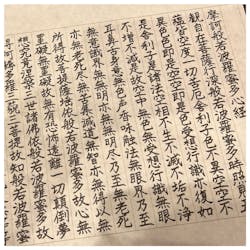 摩訶般若波羅蜜多心経
観自在菩薩行深般若波羅蜜多時照見五
蘊皆空度一切苦厄舎利子色不異空空不
異色色即是空空即是色受想行識亦復如
是舎利子是諸法空相不生不滅不垢不浄
不増不減是故空中無色無受想行識無眼
耳鼻舌身意無色声香味触法無眼界乃至
無意識界無無明亦無無明尽乃至無老死
亦無老死尽無苦集滅道無智亦無得以無
所得故菩提薩埵依般若波羅蜜多故心無
罣礙無罣礙故無有恐怖遠離一切顛倒夢
想究竟涅槃三世諸佛依般若波羅蜜多故
得阿耨多羅三藐三菩提故知般若波羅蜜